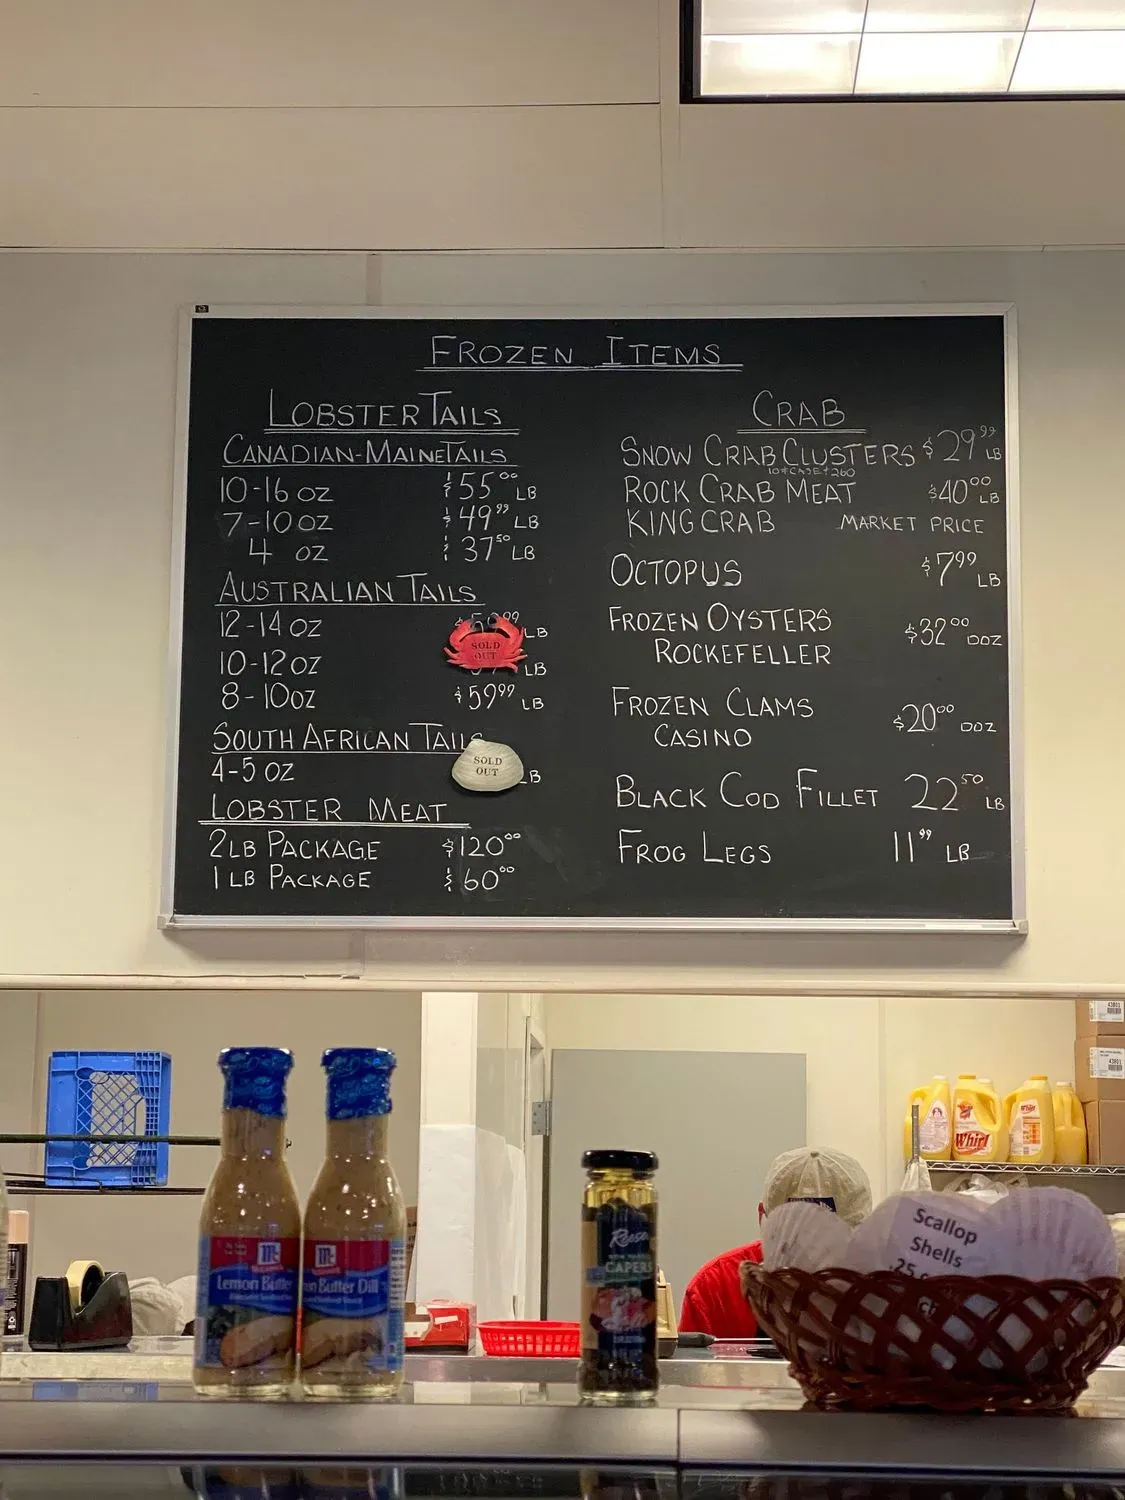 FROZEN ITEMS
LOBSTER TAILS
CANADIAN-MAINE TAILS
10-16 OZ $55.00 LB
7-10 OZ $49.99 LB
4 OZ $37.50 LB
AUSTRALIAN TAILS
12-14 OZ LB
SOLD
OUT
10-12 OZ LB
8-10 OZ $59.99 LB
SOUTH AFRICAN TAILS
SOLD
OUT
4-5 OZ LB
LOBSTER MEAT
2 LB PACKAGE $120.00
1 LB PACKAGE $60.00
CRAB
SNOW CRAB CLUSTERS $29.99 LB
ROCK CRAB MEAT $40.00 LB
KING CRAB MARKET PRICE
OCTOPUS $7.99 LB
FROZEN OYSTERS
ROCKEFELLER $32.00 DOZ
FROZEN CLAMS
CASINO $20.00 DOZ
BLACK COD FILLET 22.50 LB
FROG LEGS 11.99 LB
43801
43801
Whirl
Whirl
Lemon Butter
Butter Dill
Reese
CAPERS
Scallop
Shells
.25